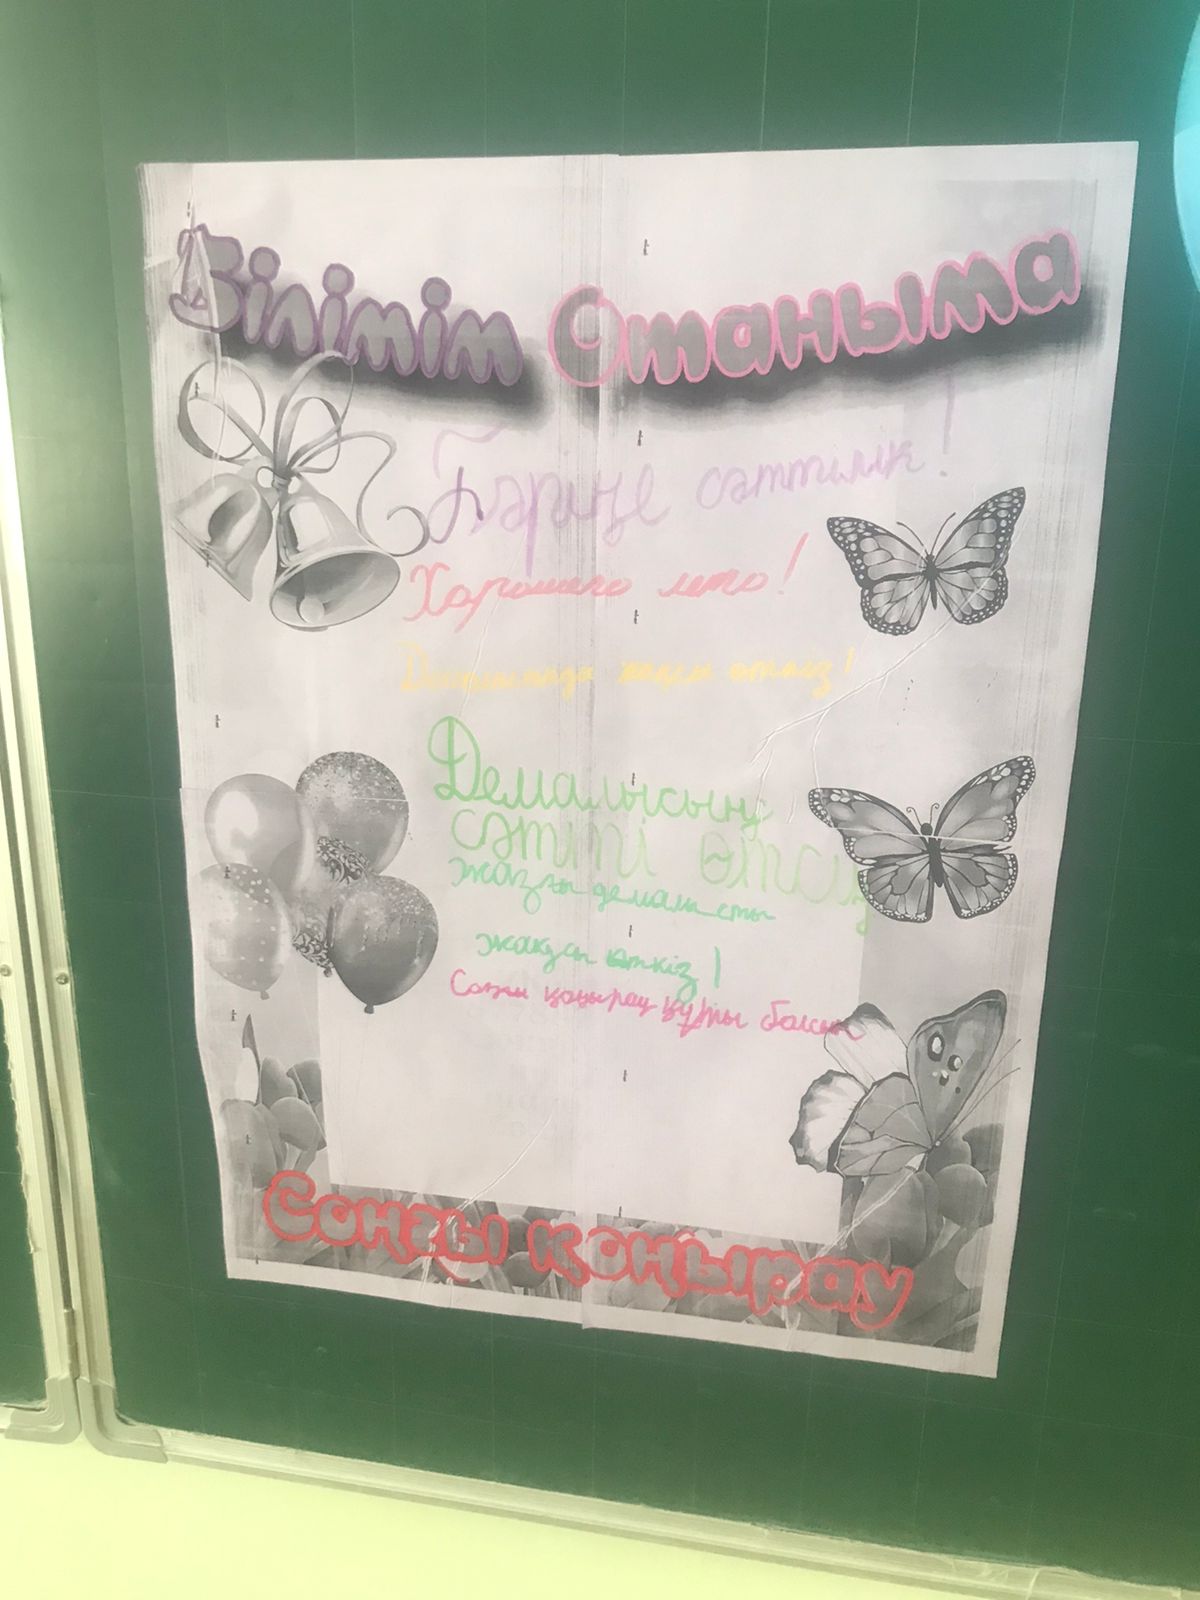 Білімім Отаныма
Бәріңе сәттілік!
Хорошего лето!
Демалысыңыз жақсы өткіз!
Демалысың
сәтті өтсің
жазғы демалысты
жақсы өткіз!
Соңғы қоңырау құтты болсын
Соңғы қоңырау